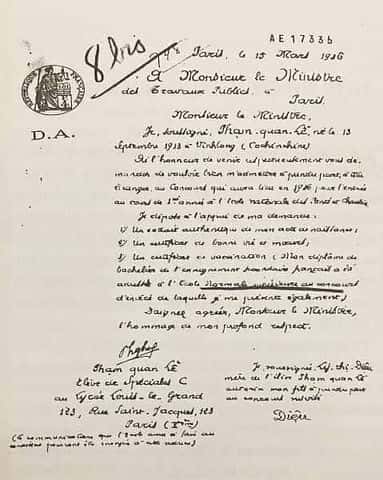 AE 17336
8 bis
Paris, le 15 Mars 1936
A Monsieur le Ministre
des Travaux Publics à
Paris.
REPUBLIQUE FRANÇAISE
D.A.
Monsieur le Ministre,
Je, soussigné, Pham quan Lê, né le 13
Septembre 1913 à Vinhlong (Cochinchine)
Ai l'honneur de venir respectueusement vous de-
mander de vouloir bien m'admettre à prendre part, à titre
étranger, au Concours qui aura lieu en 1936 pour l'entrée
au cours de 1ère année à l'Ecole Nationale des Ponts et Chaussées
Je dépose à l'appui de ma demande:
1) Un extrait authentique de mon acte de naissance;
2) Un certificat de bonne vie et moeurs;
3) Un certificat de vaccination (Mon diplôme de
bachelier de l'enseignement secondaire français a été
à l'Ecole Normale supérieure au concours
d'entrée de laquelle je me présente également)
Daignez agréer, Monsieur le Ministre,
l'hommage de mon profond respect.
Pham quan Lê
Elève de Spéciales C
au Lycée Louis-le-Grand
123, Rue Saint-Jacques, 123
Paris (Vème)
(les communications que l'Ecole aura à faire au
candidat pourront être envoyées à cette adresse)
Je soussignée, Lý thị Diệu
mère de l'élève Pham quan Lê
autorise mon fils à prendre part
au concours
Diệu